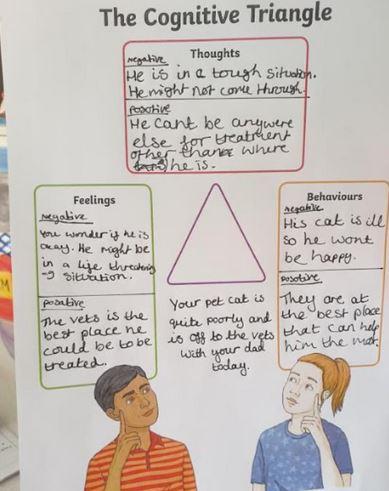 The Cognitive Triangle
Thoughts
negative
He is in a tough situation.
He might not come through.
posotive
He cant be anywere
else for treatment
other than where
he is.
Feelings
negative
You wonder if he is
okay. He might be
in a life threatening
situation.
posative
The vets is the
best place he
could be to be
treated.
Behaviours
negative
His cat is ill
so he wont
be happy.
posotive
They are at
the best place
that can help
him the most.
Your pet cat is
quite poorly and
is off to the vets
with your dad
today.